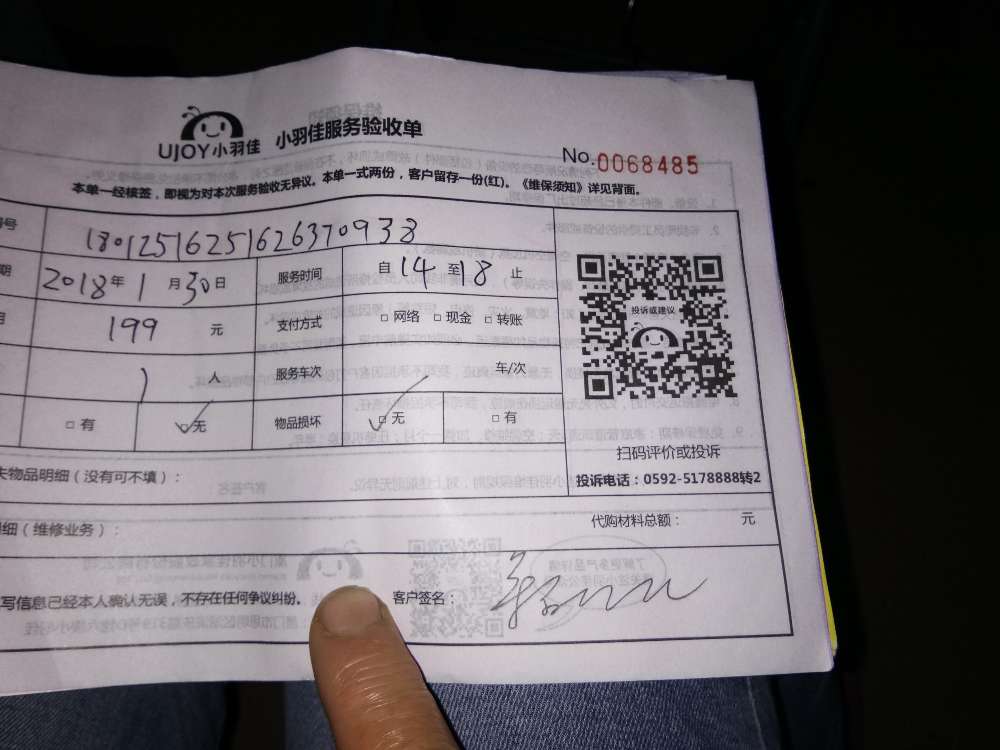 UJOY小羽佳 小羽佳服务验收单
No.0068485
本单一经核签，即视为对本次服务验收无异议。本单一式两份，客户留存一份(红)。《维保须知》详见背面。
号 18012516251626370938
期 2018年1月30日 服务时间 自14至18止
199元 支付方式 □网络 □现金 □转账
1人 服务车次 车/次
□有 □无 物品损坏 □无 □有
投诉或建议
扫码评价或投诉
投诉电话：0592-5178888转2
失物品明细（没有可不填）：
细（维修业务）： 代购材料总额： 元
写信息已经本人确认无误，不存在任何争议纠纷。 客户签名：